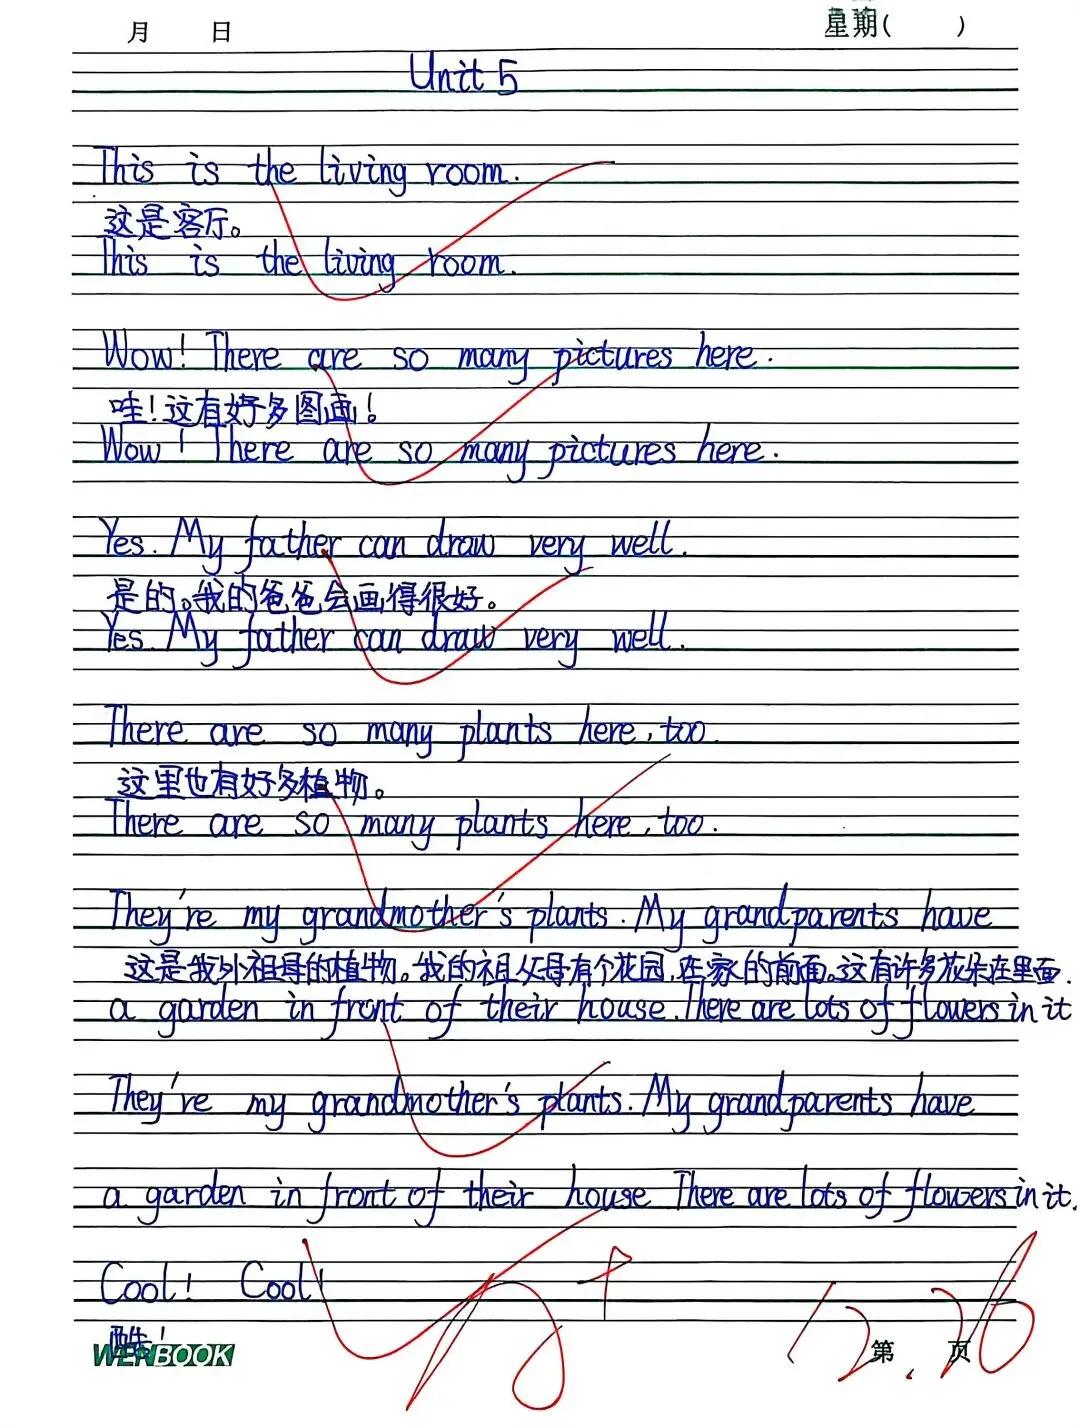 月 日 星期( )
Unit 5
This is the living room.
这是客厅。
This is the living room.
Wow! There are so many pictures here.
哇!这有好多图画!
Wow! There are so many pictures here.
Yes. My father can draw very well.
是的。我的爸爸会画得很好。
Yes. My father can draw very well.
There are so many plants here, too.
这里也有好多植物。
There are so many plants here, too.
They're my grandmother's plants. My grandparents have
这是我外祖母的植物。我的祖父母有个花园,在家的前面。这有许多花朵在里面.
a garden in front of their house. There are lots of flowers in it
They're my grandmother's plants. My grandparents have
a garden in front of their house There are lots of flowers in it.
Cool! Cool!
酷!
WENBOOK
第 页
12.26